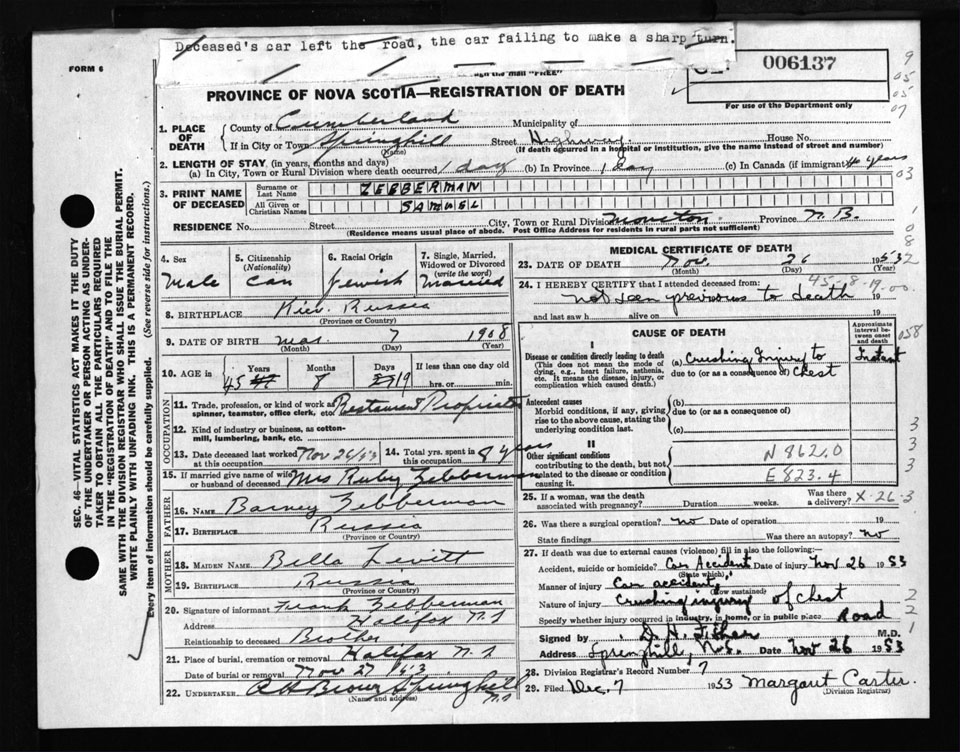 Deceased's car left the road, the car failing to make a sharp turn.
FORM 6
006137
For use of the Department only
PROVINCE OF NOVA SCOTIA—REGISTRATION OF DEATH
1. PLACE OF DEATH
County of Cumberland Municipality of
If in City or Town Springhill Street Highway House No.
(Name) (If death occurred in a hospital or institution, give the name instead of street and number)
2. LENGTH OF STAY (in years, months and days)
(a) In City, Town or Rural Division where death occurred 1 day (b) In Province 1 day (c) In Canada (if immigrant) 4 years
3. PRINT NAME OF DECEASED
Surname or Last Name ZEBBERMAN
All Given or Christian Names SAMUEL
RESIDENCE No. Street City, Town or Rural Division Moncton Province N.B.
(Residence means usual place of abode. Post Office Address for residents in rural parts not sufficient)
4. Sex Male
5. Citizenship (Nationality) Can
6. Racial Origin Jewish
7. Single, Married, Widowed or Divorced (write the word) Married
8. BIRTHPLACE Kiev. Russia
(Province or Country)
9. DATE OF BIRTH Mar. 7 1908
(Month) (Day) (Year)
10. AGE in Years Months Days If less than one day
45 8 19 hrs. or min.
OCCUPATION
11. Trade, profession, or kind of work as spinner, teamster, office clerk, etc. Restaurant Proprietor
12. Kind of industry or business, as cotton-mill, lumbering, bank, etc.
13. Date deceased last worked at this occupation Nov 26/53
14. Total yrs. spent in this occupation 8 years
15. If married give name of wife or husband of deceased Mrs Ruby Zebberman
FATHER
16. Name Barney Zebberman
17. Birthplace Russia
(Province or Country)
MOTHER
18. Maiden Name Bella Levitt
19. Birthplace Russia
(Province or Country)
20. Signature of informant Frank Zebberman
Address Halifax N.S
Relationship to deceased Brother
21. Place of burial, cremation or removal Halifax N.S
Date of burial or removal Nov 27 53
22. UNDERTAKER Brown Springhill N.S
(Name and address)
MEDICAL CERTIFICATE OF DEATH
23. DATE OF DEATH Nov. 26 1953
(Month) (Day) (Year)
24. I HEREBY CERTIFY that I attended deceased from: 45-8-19-00
not seen previous to death 19
and last saw h alive on 19
CAUSE OF DEATH
Approximate interval between onset and death
I
Disease or condition directly leading to death (a) Crushing Injury to Chest Instant
(This does not mean the mode of dying, e.g., heart failure, asthenia, etc. It means the disease, injury, or complication which caused death.)
due to (or as a consequence of)
Antecedent causes
Morbid conditions, if any, giving rise to the above cause, stating the underlying condition last.
(b)
due to (or as a consequence of)
(c)
II
Other significant conditions contributing to the death, but not related to the disease or condition causing it.
N 862.0
E 823.4
25. If a woman, was the death associated with pregnancy? Duration weeks. Was there a delivery? X-26-3
26. Was there a surgical operation? no Date of operation 19
State findings Was there an autopsy? no
27. If death was due to external causes (violence) fill in also the following:—
Accident, suicide or homicide? Car Accident Date of injury Nov 26 1953
(State which)
Manner of injury Car accident
(How sustained)
Nature of injury Crushing injury of chest
Specify whether injury occurred in industry, in home, or in public place Road
Signed by D. H. Fisher M.D.
Address Springhill, N.S. Date Nov 26 1953
28. Division Registrar's Record Number 7
29. Filed Dec. 7 1953 Margaret Carter
(Division Registrar)
SEC. 46—VITAL STATISTICS ACT MAKES IT THE DUTY OF THE UNDERTAKER OR PERSON ACTING AS UNDERTAKER TO OBTAIN ALL THE PARTICULARS REQUIRED IN THE "REGISTRATION OF DEATH" AND TO FILE THE SAME WITH THE DIVISION REGISTRAR WHO SHALL ISSUE THE BURIAL PERMIT.
WRITE PLAINLY WITH UNFADING INK. THIS IS A PERMANENT RECORD.
Every item of information should be carefully supplied. (See reverse side for instructions.)